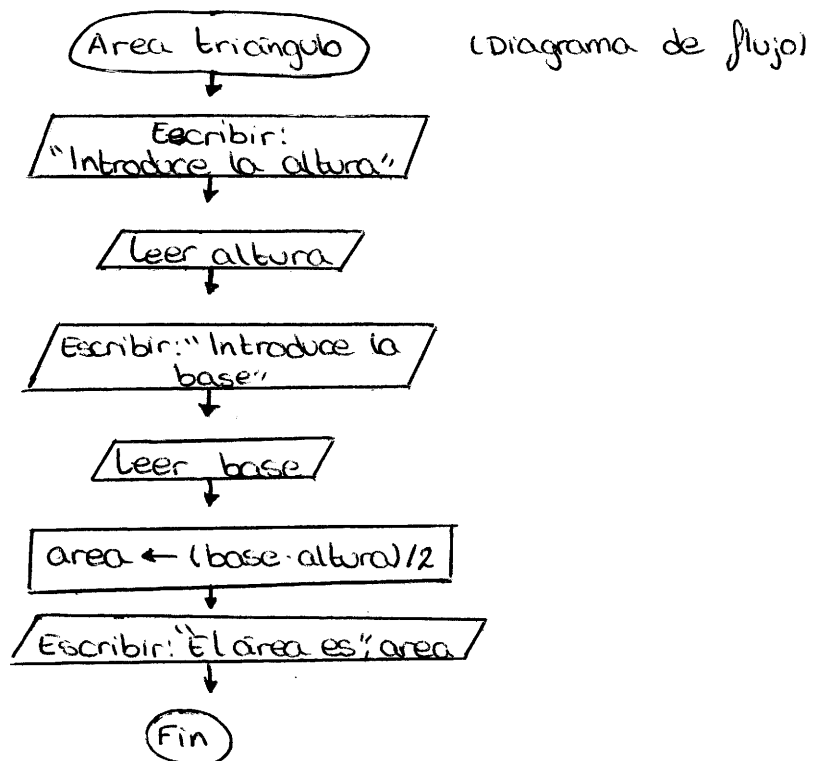 Area triángulo
(Diagrama de flujo)
Escribir:
"Introduce la altura"
Leer altura
Escribir: "Introduce la
base"
Leer base
area ← (base·altura)/2
Escribir: "El área es", area
Fin